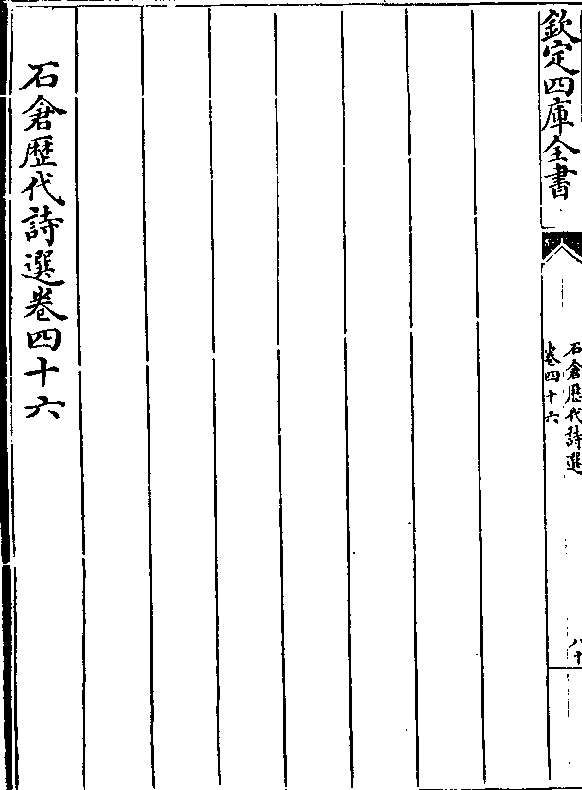 欽定四庫全書
石倉歴代詩選
卷四十六
八十
石倉歴代詩選卷四十六